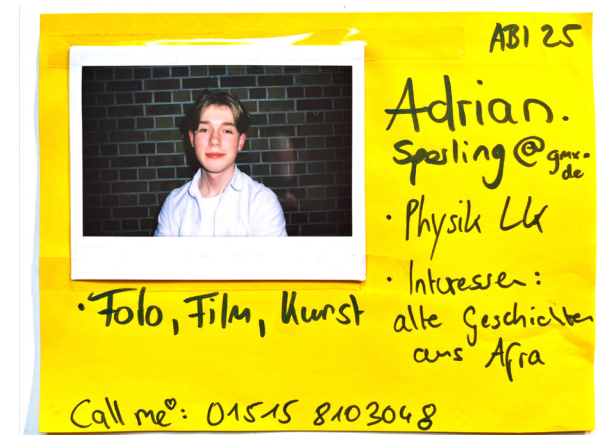 ABI 25
Adrian.
Sperling@gmx.
de
• Physik LK
• Interessen:
alte Geschichten
aus Afra
• Foto, Film, Kunst
Call me♡: 01515 8103048